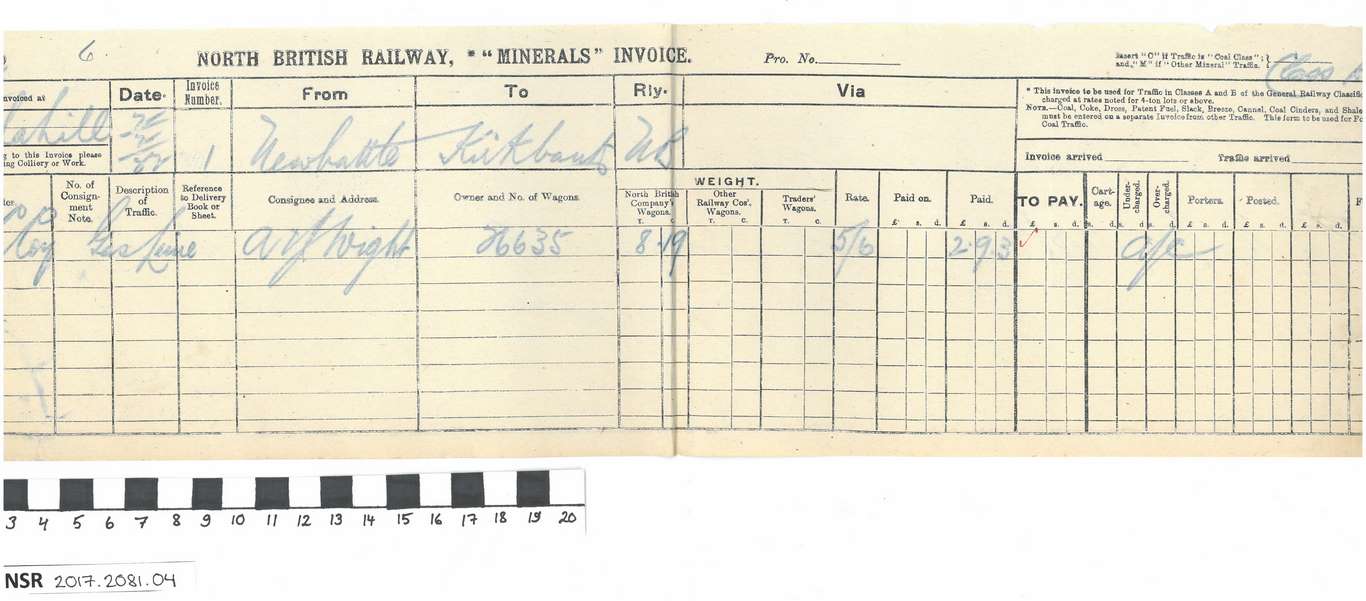 6
NORTH BRITISH RAILWAY, * "MINERALS" INVOICE. Pro. No.
Insert "C" if Traffic is "Coal Class";
and "M" if "Other Mineral" Traffic.
nvoiced at Date. Invoice Number. From To Rly. Via
* This invoice to be used for Traffic in Classes A and B of the General Railway Classific
charged at rates noted for 4-ton lots or above.
NOTE.—Coal, Coke, Dross, Patent Fuel, Slack, Breeze, Cannel, Coal Cinders, and Shale
must be entered on a separate Invoice from other Traffic. This form to be used for
Coal Traffic.
1 Newbattle Kirkbank NB
g to this Invoice please
ing Colliery or Work.
Invoice arrived Traffic arrived
No. of Consignment Note. Description of Traffic. Reference to Delivery Book or Sheet. Consignee and Address. Owner and No. of Wagons. WEIGHT. North British Company's Wagons. T. C. Other Railway Cos'. Wagons. T. C. Traders' Wagons. T. C. Rate. Paid on. £ s. d. Paid. £ s. d. TO PAY. £ s. d. Cartage. s. d. Undercharged. s. d. Overcharged. s. d. Porters. £ s. d. Posted. £ s. d. £ s. d. F
A & J Wight 26635 8 19 5/6 2 9 3 a/c
3 4 5 6 7 8 9 10 11 12 13 14 15 16 17 18 19 20
NSR 2017.2081.04